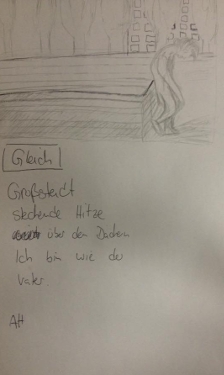 Gleich
Großstadt
stechende Hitze
über den Dächern
Ich bin wie du
Vater.
AH